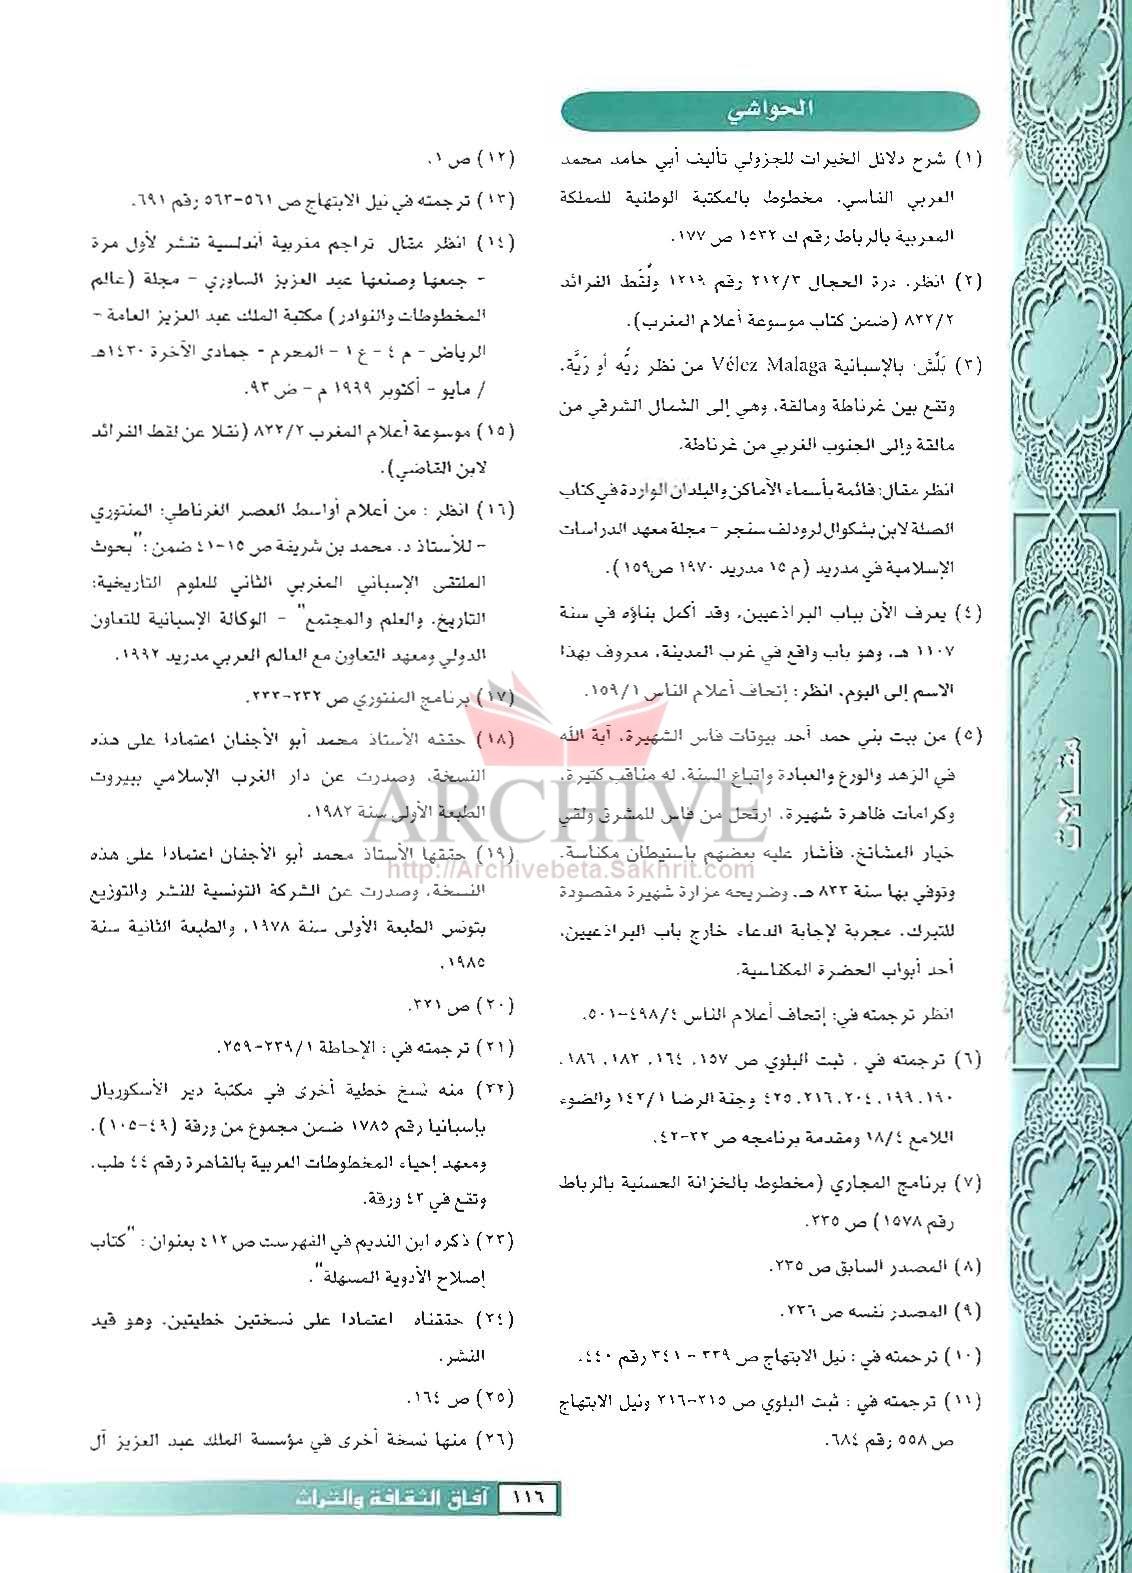 الحواشي
(١) شرح دلائل الخيرات للجزولي تأليف أبي حامد محمد
العربي الفاسي. مخطوط بالمكتبة الوطنية للمملكة
المغربية بالرباط رقم ك ١٥٣٢ ص ١٧٧.
(٢) انظر، درة الحجال ٢١٢/٣ رقم ١٢١٩ ولُقَط الفرائد
٨٢٢/٢ (ضمن كتاب موسوعة أعلام المغرب).
(٣) بَلّش بالإسبانية Vélez Malaga من نظر ريُّه أو رَيَّة،
وتقع بين غرناطة ومالقة، وهي إلى الشمال الشرقي من
مالقة وإلى الجنوب الغربي من غرناطة.
انظر مقال: قائمة بأسماء الأماكن والبلدان الواردة في كتاب
الصلة لابن بشكوال لرودلف سنجر - مجلة معهد الدراسات
الإسلامية في مدريد (م ١٥ مدريد ١٩٧٠ ص١٥٩).
(٤) يعرف الأن بباب البراذعيين، وقد أكمل بناؤه في سنة
١١٠٧ هـ، وهو باب واقع في غرب المدينة، معروف بهذا
الاسم إلى اليوم. انظر: إتحاف أعلام الناس ١٥٩/١.
(٥) من بيت بني حمد أحد بيوتات فاس الشهيرة، آية الله
في الزهد والورع والعبادة واتباع السنة، له مناقب كثيرة،
وكرامات ظاهرة شهيرة، ارتحل من فاس للمشرق ولقي
خيار المشائخ، فأشار عليه بعضهم باستيطان مكناسة،
وتوفي بها سنة ٨٣٣ هـ، وضريحه مزارة شهيرة مقصودة
للتبرك، مجربة لإجابة الدعاء خارج باب البراذعيين،
أحد أبواب الحضرة المكناسية.
انظر ترجمته في: إتحاف أعلام الناس ٤٩٨/٤-٥٠١.
(٦) ترجمته في . ثبت البلوي ص ١٥٧، ١٦٤، ١٨٣، ١٨٦،
١٩٠، ١٩٩، ٢٠٤، ٢١٦، ٤٢٥ وجنة الرضا ١٤٢/١ والضوء
اللامع ١٨/٤ ومقدمة برنامجه ص ٣٢-٤٢.
(٧) برنامج المجاري (مخطوط بالخزانة الحسنية بالرباط
رقم ١٥٧٨) ص ٢٣٥.
(٨) المصدر السابق ص ٢٣٥.
(٩) المصدر نفسه ص ٢٣٦.
(١٠) ترجمته في : نيل الابتهاج ص ٣٣٩ - ٣٤١ رقم ٤٤٠.
(١١) ترجمته في : ثبت البلوي ص ٢١٥-٢١٦ ونيل الابتهاج
ص ٥٥٨ رقم ٦٨٤.
(١٢) ص ١.
(١٣) ترجمته في نيل الابتهاج ص ٥٦١-٥٦٣ رقم ٦٩١.
(١٤) انظر مقال تراجم مغربية أندلسية تنشر لأول مرة
- جمعها وصنعها عبد العزيز الساوري - مجلة (عالم
المخطوطات والنوادر) مكتبة الملك عبد العزيز العامة -
الرياض - م ٤ - ع ١ - المحرم - جمادى الآخرة ١٤٣٠هـ
/ مايو - أكتوبر ١٩٩٩ م - ض ٩٣.
(١٥) موسوعة أعلام المغرب ٨٢٢/٢ (نقلا عن لقط الفرائد
لابن القاضي).
(١٦) انظر : من أعلام أواسط العصر الغرناطي: المنتوري
- للأستاذ د. محمد بن شريفة ص ١٥-٤١ ضمن : "بحوث
الملتقى الإسباني المغربي الثاني للعلوم التاريخية:
التاريخ، والعلم والمجتمع" - الوكالة الإسبانية للتعاون
الدولي ومعهد التعاون مع العالم العربي مدريد ١٩٩٢.
(١٧) برنامج المنتوري ص ٢٣٢-٢٣٣.
(١٨) حققه الأستاذ محمد أبو الأجفان اعتمادا على هذه
النسخة، وصدرت عن دار الغرب الإسلامي ببيروت
الطبعة الأولى سنة ١٩٨٢.
(١٩) حققها الأستاذ محمد أبو الأجفان اعتمادا على هذه
النسخة، وصدرت عن الشركة التونسية للنشر والتوزيع
بتونس الطبعة الأولى سنة ١٩٧٨، والطبعة الثانية سنة
١٩٨٥.
(٢٠) ص ٣٣١.
(٢١) ترجمته في : الإحاطة ٢٣٩/١-٢٥٩.
(٢٢) منه نسخ خطية أخرى في مكتبة دير الأسكوريال
بإسبانيا رقم ١٧٨٥ ضمن مجموع من ورقة (٤٩-١٠٥).
ومعهد إحياء المخطوطات العربية بالقاهرة رقم ٤٤ طب.
وتقع في ٤٣ ورقة.
(٢٣) ذكره ابن النديم في الفهرست ص ٤١٢ بعنوان : "كتاب
إصلاح الأدوية المسهلة".
(٢٤) حققناه اعتمادا على نسختين خطيتين، وهو قيد
النشر.
(٢٥) ص ١٦٤.
(٢٦) منها نسخة أخرى في مؤسسة الملك عبد العزيز آل
مقالات
ARCHIVE
http://Archivebeta.Sakhrit.com
١١٦ آفاق الثقافة والتراث